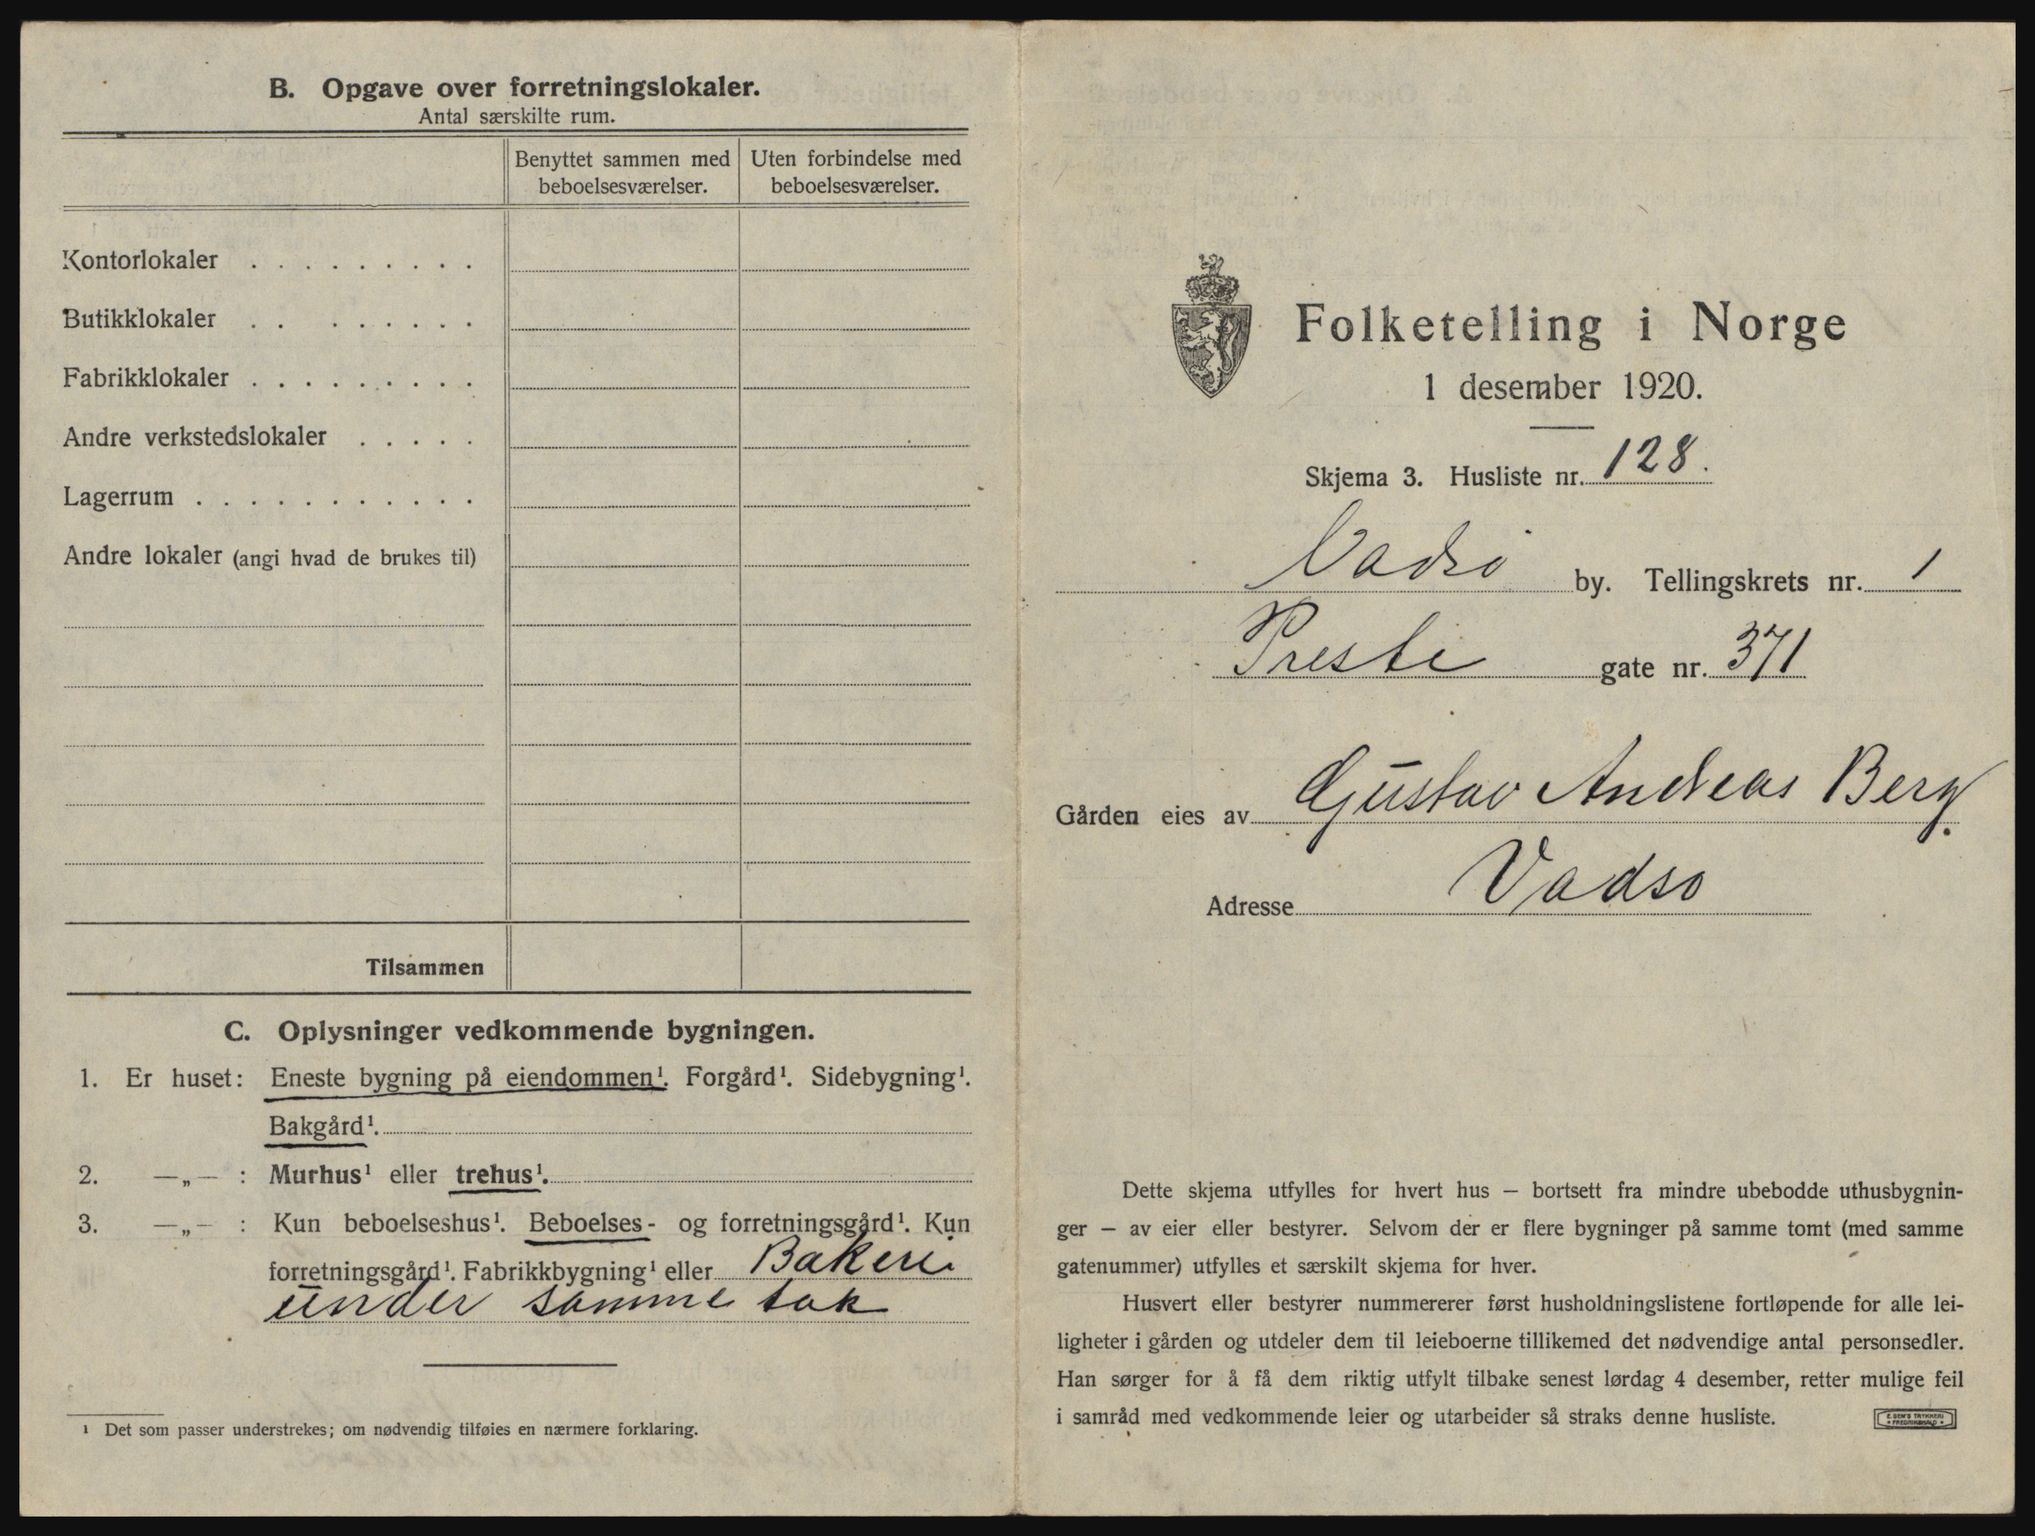 B. Opgave over forretningslokaler.
Antal særskilte rum.
Benyttet sammen med beboelsesværelser.
Uten forbindelse med beboelsesværelser.
Kontorlokaler . . . . . . . . .
Butikklokaler . . . . . . . .
Fabrikklokaler . . . . . . . . .
Andre verkstedslokaler . . . . .
Lagerrum . . . . . . . . . . .
Andre lokaler (angi hvad de brukes til)
Tilsammen
C. Oplysninger vedkommende bygningen.
1. Er huset: Eneste bygning på eiendommen¹. Forgård¹. Sidebygning¹.
Bakgård¹.
2. —„— : Murhus¹ eller trehus¹.
3. —„— : Kun beboelseshus¹. Beboelses- og forretningsgård¹. Kun
forretningsgård¹. Fabrikkbygning¹ eller Bakeri
under samme tak
¹ Det som passer understrekes; om nødvendig tilføies en nærmere forklaring.
Folketelling i Norge
1 desember 1920.
Skjema 3. Husliste nr. 128.
Vadsø by. Tellingskrets nr. 1
Preste gate nr. 371
Gården eies av Gustav Andreas Berg.
Adresse Vadsø
Dette skjema utfylles for hvert hus — bortsett fra mindre ubebodde uthusbygnin-
ger — av eier eller bestyrer. Selvom der er flere bygninger på samme tomt (med samme
gatenummer) utfylles et særskilt skjema for hver.
Husvert eller bestyrer nummererer først husholdningslistene fortløpende for alle lei-
ligheter i gården og utdeler dem til leieboerne tillikemed det nødvendige antal personsedler.
Han sørger for å få dem riktig utfylt tilbake senest lørdag 4 desember, retter mulige feil
i samråd med vedkommende leier og utarbeider så straks denne husliste.
E. SEM'S TRYKKERI
FREDRIKSHALD